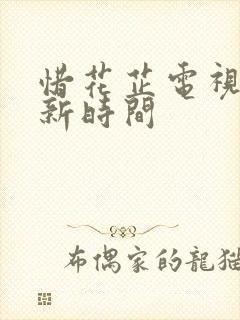 惜花芷電視
新時間
布偶家的龍貓